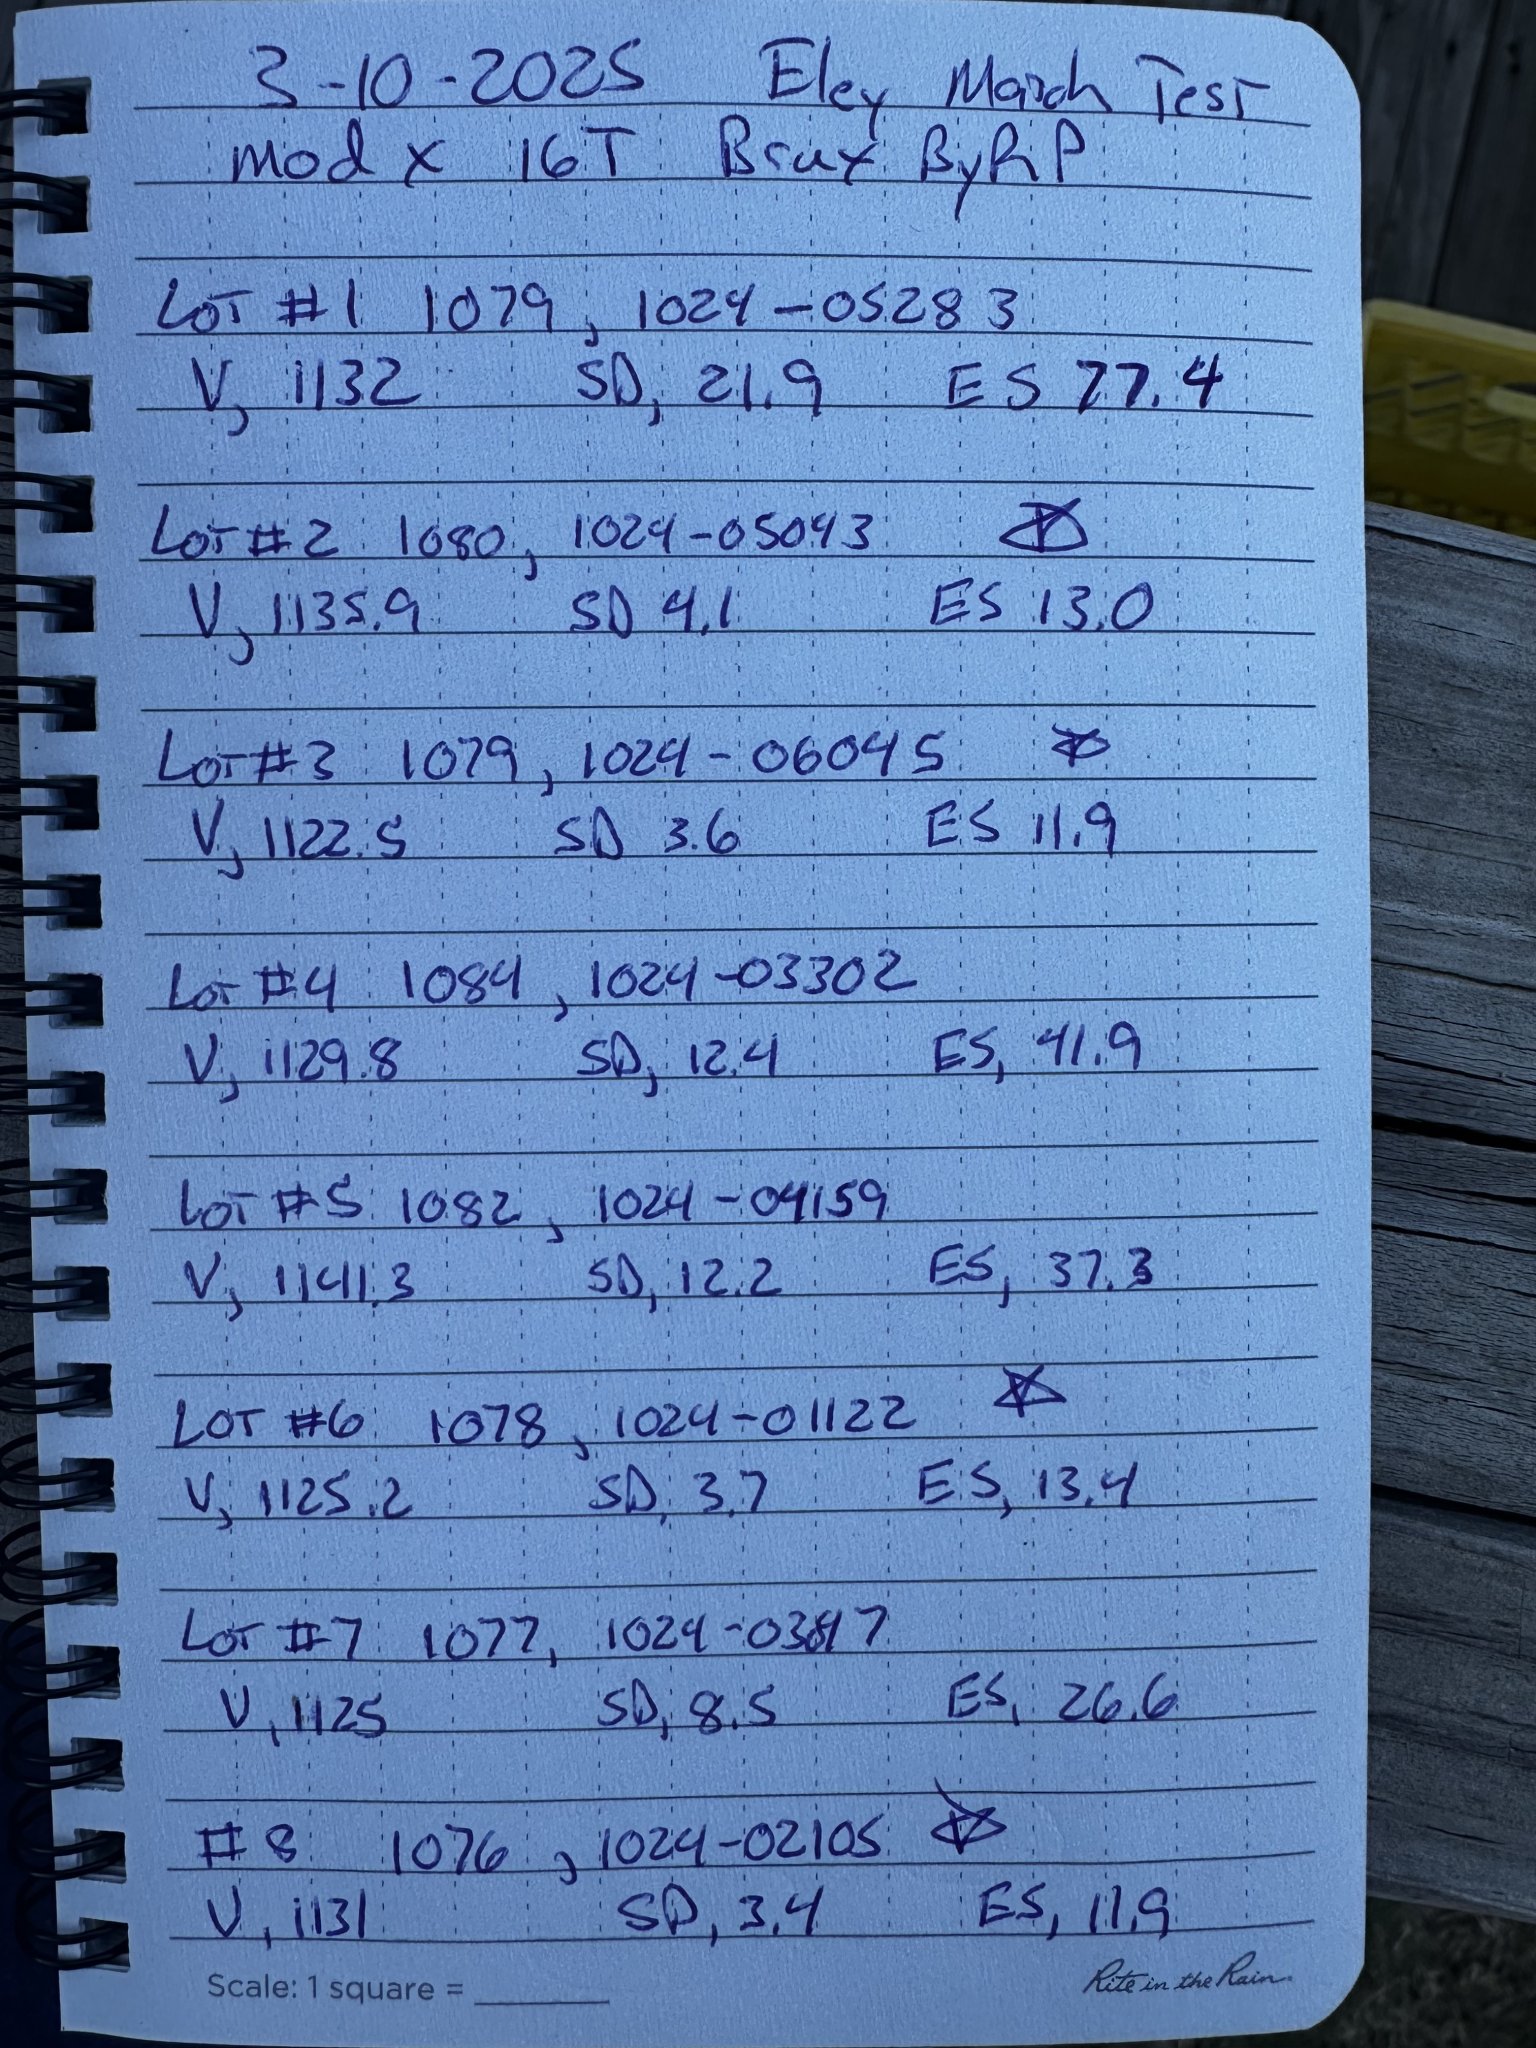 3-10-2025 Eley March Test
mod x 16T Brux ByRP
LOT #1 1079, 1024-05283
V, 1132 SD, 21.9 ES 77.4
LOT #2 1080, 1024-05043
V, 1135.9 SD 4.1 ES 13.0
LOT #3 1079, 1024-06045
V, 1122.5 SD 3.6 ES 11.9
LOT #4 1084, 1024-03302
V, 1129.8 SD, 12.4 ES, 41.9
LOT #5 1082, 1024-04159
V, 1141.3 SD, 12.2 ES, 37.3
LOT #6 1078, 1024-01122
V, 1125.2 SD, 3.7 ES, 13.4
LOT #7 1077,
V, 1125 SD, 8.5 ES, 26.6
#8 1076, 1024-02105
V, 1131 SD, 3.4 ES, 11.9
Scale: 1 square = ______
Rite in the Rain